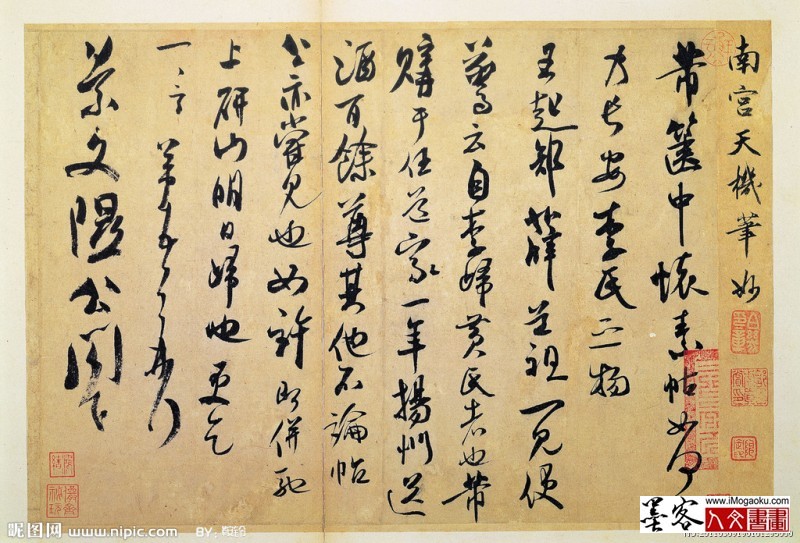 南宫天機筆妙
芾篋中懷素帖如何
乃長安李氏之物
王起部薛道祖一見便
驚云自李歸黃氏者也芾
購于任道家一年揚州送
酒百餘尊其他不論帖
公亦嘗見也如許即併馳
上研山明日歸也更乞
一言芾頓首再拜
景文隰公閣下
昵图网 www.nipic.com BY:
www.lMogaoku.com
墨客 人文書畫